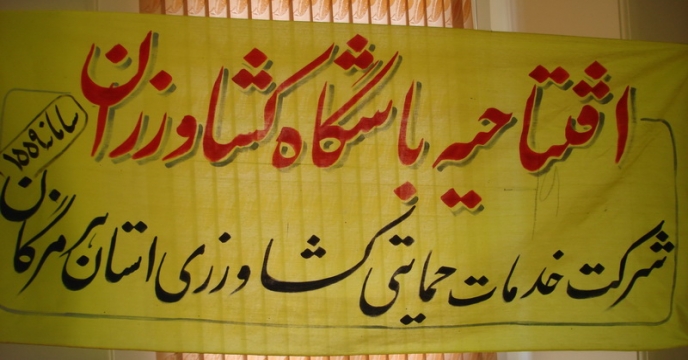 افتتاحیه باشگاه کشاورزان
سامانه ۱۵۵۹
شرکت خدمات حمایتی کشاورزی استان هرمزگان